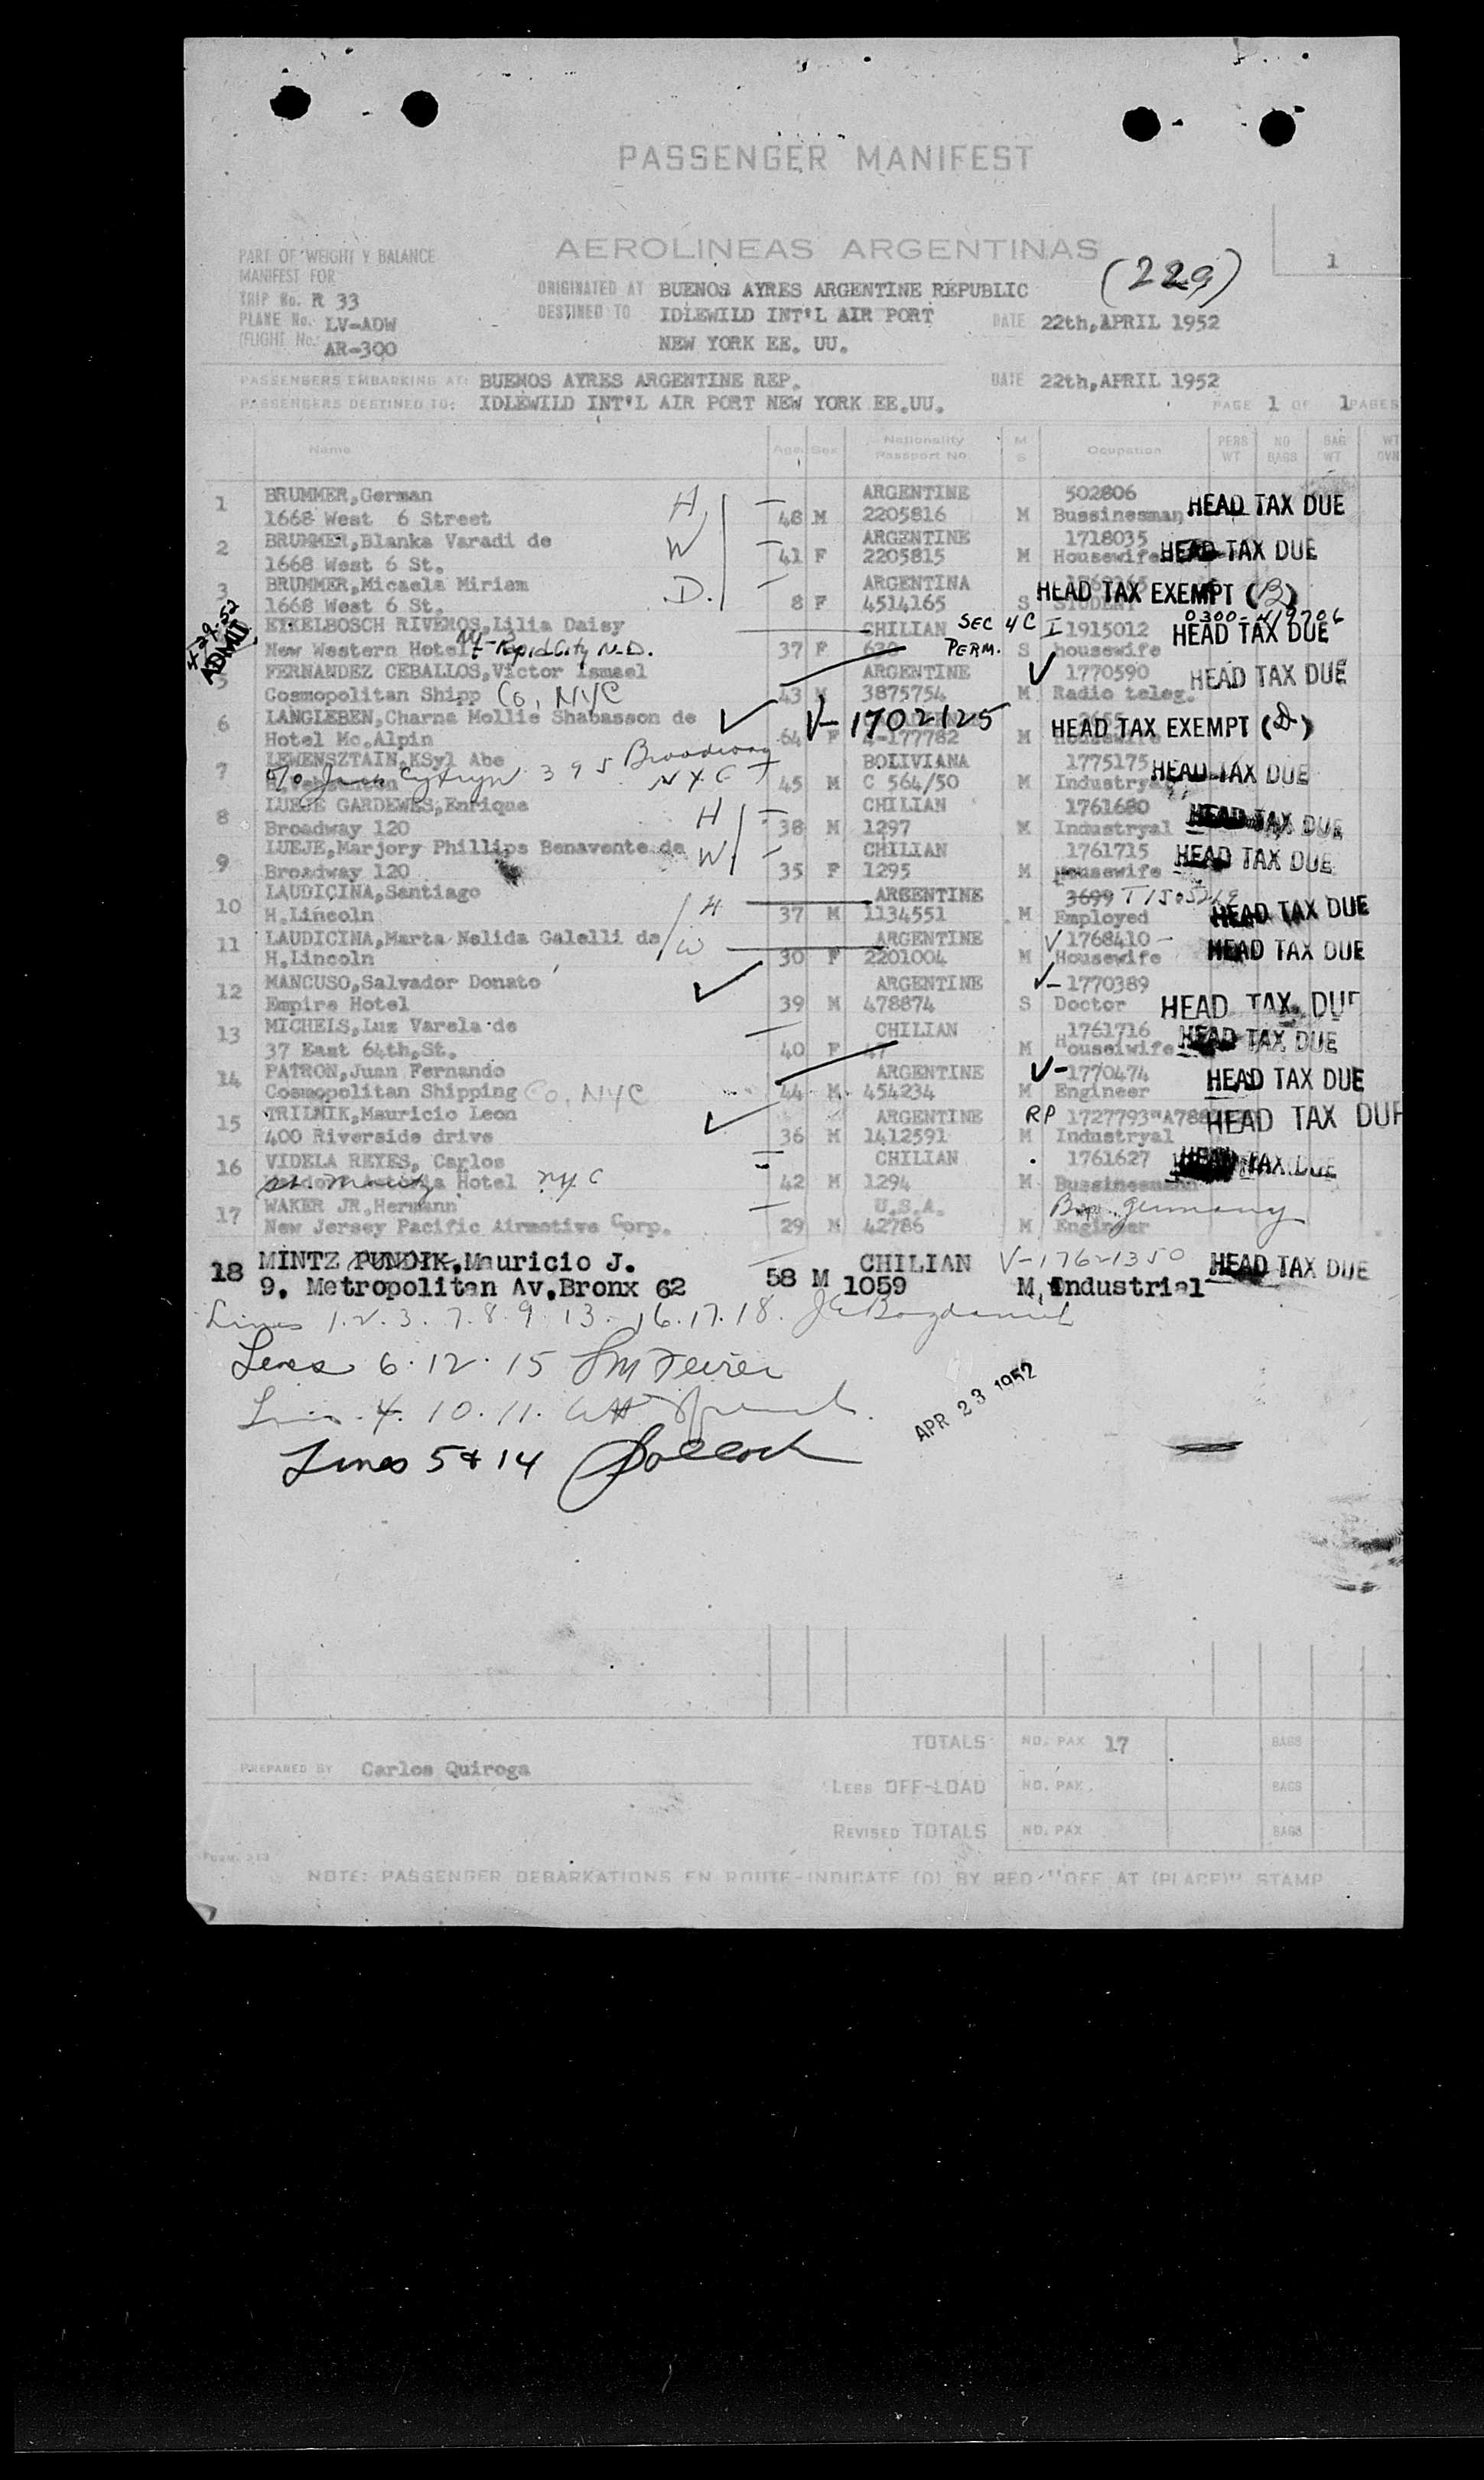 PASSENGER MANIFEST
AEROLINEAS ARGENTINAS
(229)
1
PART OF WEIGHT Y BALANCE
MANIFEST FOR
TRIP No. R 33
PLANE No. LV-ADW
(FLIGHT No.: AR-300
ORIGINATED AT BUENOS AYRES ARGENTINE REPUBLIC
DESTINED TO IDLEWILD INT'L AIR PORT
NEW YORK EE. UU.
DATE 22th,APRIL 1952
PASSENGERS EMBARKING AT: BUENOS AYRES ARGENTINE REP. DATE 22th,APRIL 1952
PASSENGERS DESTINED TO: IDLEWILD INT'L AIR PORT NEW YORK EE.UU. PAGE 1 OF 1 PAGES
Name Age Sex Nationality Passport No M S Ocupation PERS WT NO BAGS BAG WT WT OVN
1 BRUMMER,German H ARGENTINE 502806
1668 West 6 Street 48 M 2205816 M Bussinesman HEAD TAX DUE
2 BRUMMER,Blanka Varadi de W ARGENTINE 1718035
1668 West 6 St. 41 F 2205815 M Housewife HEAD TAX DUE
3 BRUMMER,Micaela Miriam D. ARGENTINA
1668 West 6 St. 8 F 4514165 S STUDENT HEAD TAX EXEMPT (B)
4-29-52 ADMIT
EIKELBOSCH RIVEROS,Lilia Daisy CHILIAN SEC 4C I 1915012 0300-
New Western Hotel Rapid City N.D. 37 F PERM. S housewife HEAD TAX DUE
5 FERNANDEZ CEBALLOS,Victor Ismael ARGENTINE 1770590
Cosmopolitan Shipp Co, NYC 43 M 3875754 M Radio teleg. HEAD TAX DUE
6 LANGLEBEN,Charna Mollie Shabasson de V-1702125
Hotel Mc.Alpin 64 F 4-177782 M Housewife HEAD TAX EXEMPT (D)
7 LEWENSZTAIN,KSyl Abe BOLIVIANA 1775175
c/o Jack Cytryn 395 Broadway NYC 45 M C 564/50 M Industryal HEAD TAX DUE
8 LUEJE GARDEWES,Enrique H CHILIAN 1761680
Broadway 120 38 M 1297 M Industryal HEAD TAX DUE
9 LUEJE,Marjory Phillips Benavente de W. CHILIAN 1761715
Broadway 120 35 F 1295 M Housewife HEAD TAX DUE
10 LAUDICINA,Santiago H ARGENTINE 3699
H.Lincoln 37 M 1134551 M Employed HEAD TAX DUE
11 LAUDICINA,Marta Nelida Galelli de W ARGENTINE V 1768410
H.Lincoln 30 F 2201004 M Housewife HEAD TAX DUE
12 MANCUSO,Salvador Donato ARGENTINE V-1770389
Empire Hotel 39 M 478874 S Doctor HEAD TAX DUE
13 MICHELS,Luz Varela de CHILIAN 1761716
37 East 64th,St. 40 F 47 M Houseiwife HEAD TAX DUE
14 PATRON,Juan Fernando ARGENTINE V-1770474
Cosmopolitan Shipping Co, NYC 44 M 454234 M Engineer HEAD TAX DUE
15 TRILNIK,Mauricio Leon ARGENTINE RP 1727793"A788
400 Riverside drive 36 M 1412591 M Industryal HEAD TAX DUE
16 VIDELA REYES, Carlos CHILIAN 1761627
St. Moritz Hotel NYC 42 M 1294 M Bussinesmann HEAD TAX DUE
17 WAKER JR.Hermann U.S.A. Germany
New Jersey Pacific Airmotive Corp. 29 M 42786 M Engineer
18 MINTZ PUNDIK,Mauricio J. CHILIAN V-1761350 HEAD TAX DUE
9. Metropolitan Av.Bronx 62 58 M 1059 M Industrial
Lines 1.2.3.7.8.9.13.16.17.18.
Lines 6.12.15
Lines 4.10.11.
APR 23 1952
Lines 5 & 14 Pollock
TOTALS NO. PAX 17 BAGS
PREPARED BY Carlos Quiroga
LESS OFF-LOAD NO. PAX. BAGS
REVISED TOTALS NO. PAX BAGS
NOTE: PASSENGER DEBARKATIONS EN ROUTE-INDICATE (O) BY RED "OFF AT (PLACE)" STAMP